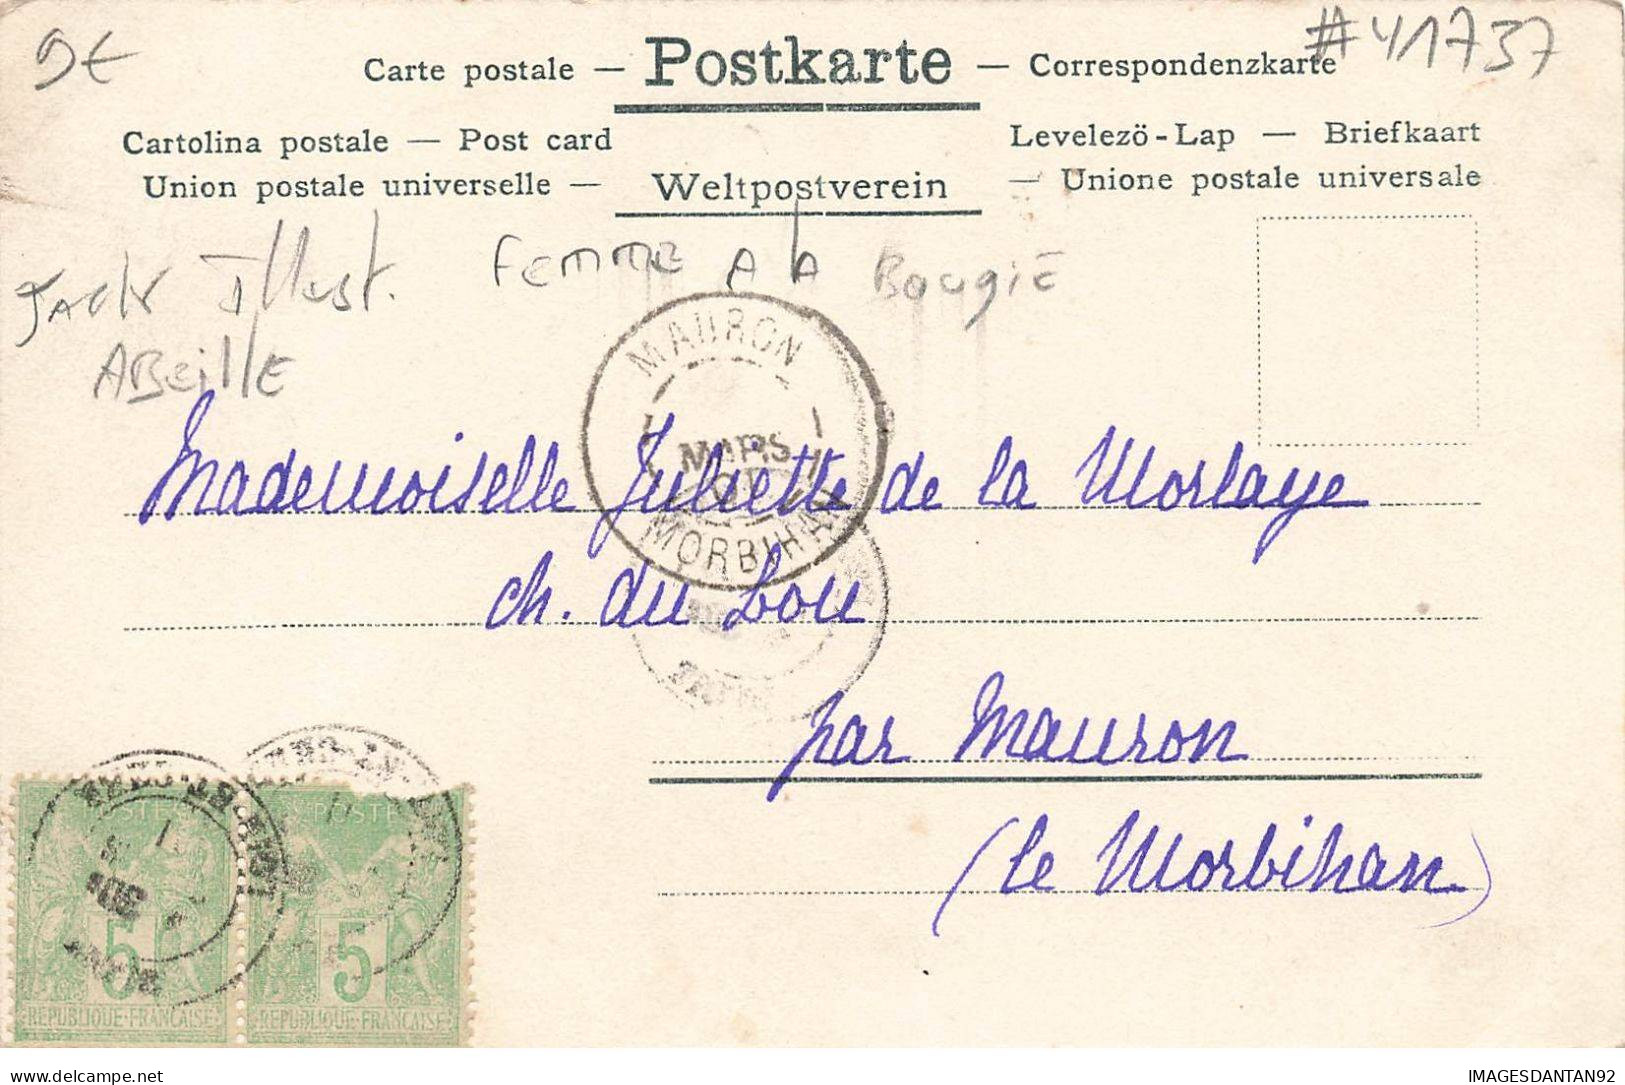 9€
#41737
Carte postale — Postkarte — Correspondenzkarte
Cartolina postale — Post card
Levelezö-Lap — Briefkaart
Union postale universelle — Weltpostverein — Unione postale universale
Illust. Femme A LA Bougie
ABeillE
MAURON
MARS
MORBIHAN
Mademoiselle Juliette de la Morlaye
ch. du Lou
par Mauron
(le Morbihan)
POSTES
5 5
REPUBLIQUE·FRANÇAISE REPUBLIQUE·FRANÇAISE
delcampe.net
IMAGESDANTAN92